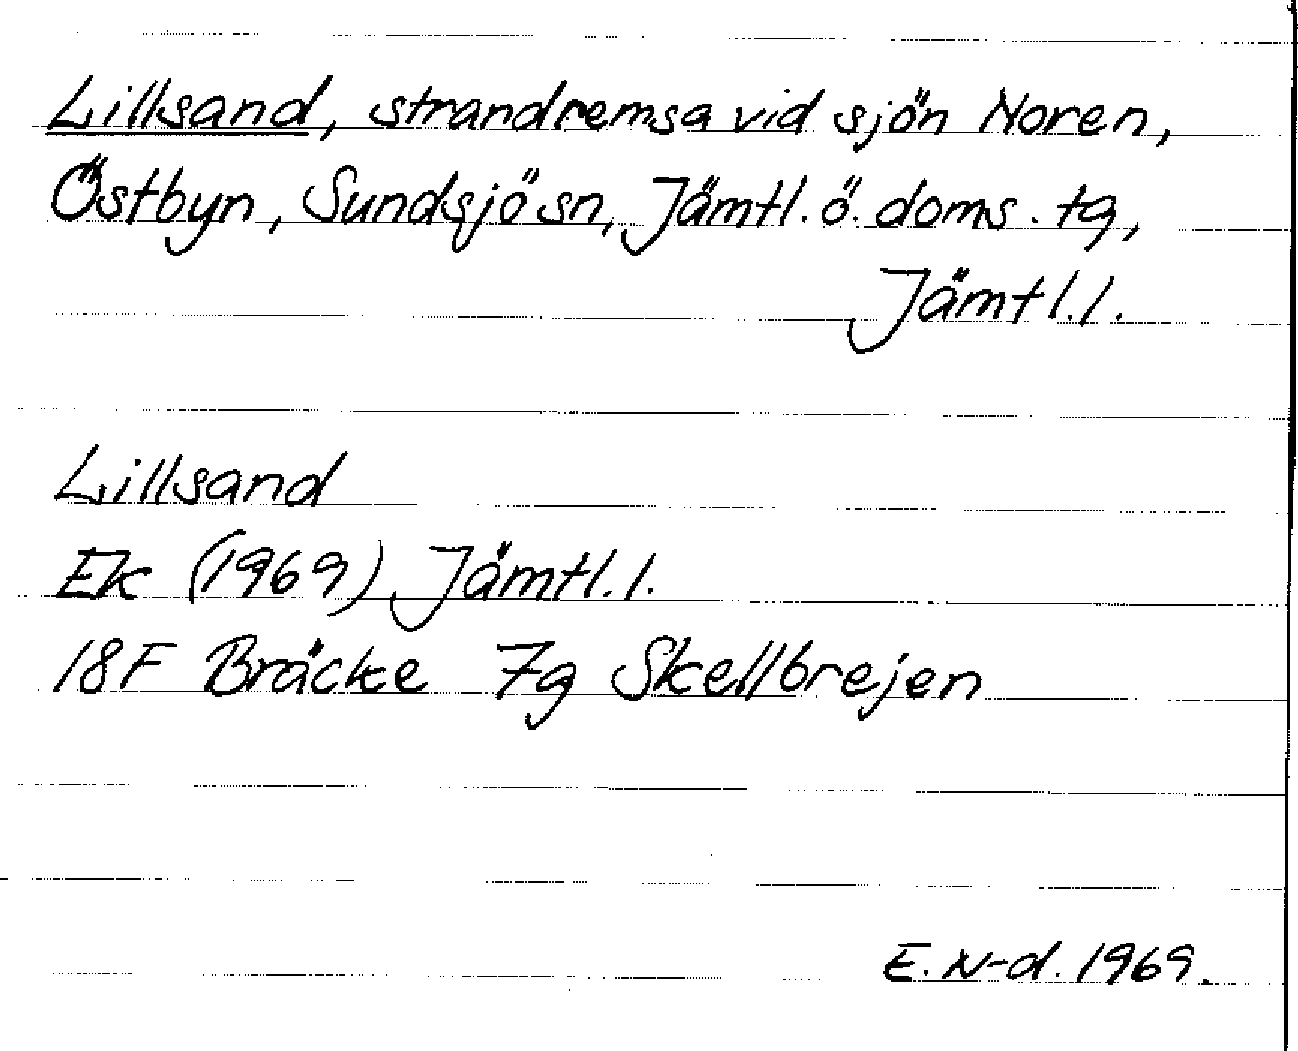 Lillsand, strandremsa vid sjön Noren,
Östbyn, Sundsjö sn, Jämtl. ö. doms. tg,
Jämtl. l.
Lillsand
Ek (1969) Jämtl. l.
18F Bräcke 7g Skellbrejen
E. N-d. 1969.